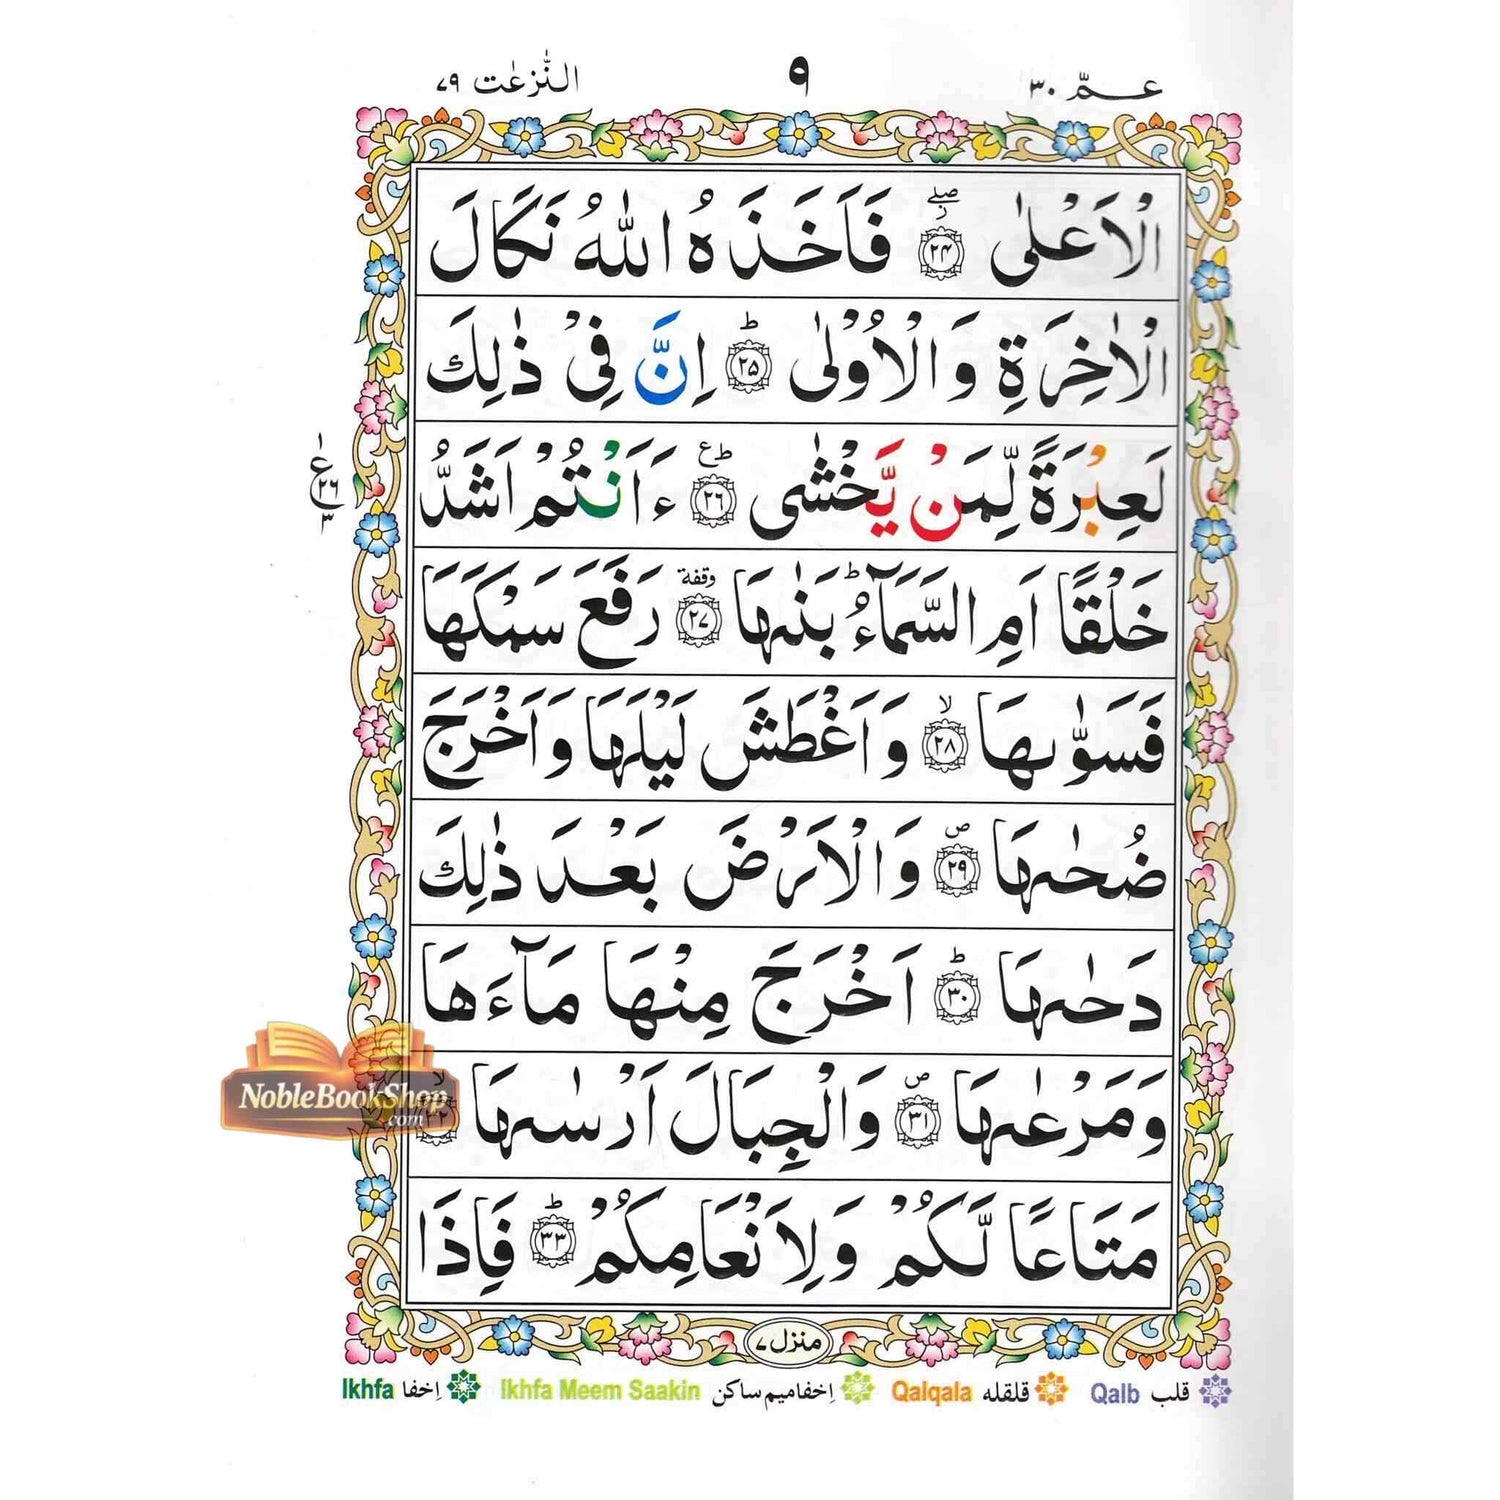 عـمّ ٣٠ ٩ النّٰزعٰت ٧٩
الْاَعْلٰى ﴿٢٤﴾ صلے ز فَاَخَذَهُ اللّٰهُ نَكَالَ
الْاٰخِرَةِ وَالْاُوْلٰى ﴿٢٥﴾ ط اِنَّ فِيْ ذٰلِكَ
لَعِبْرَةً لِّمَنْ يَّخْشٰى ﴿٢٦﴾ ط ع ءَاَنْتُمْ اَشَدُّ
ع ٢٦ ٣
خَلْقًا اَمِ السَّمَآءُ ط بَنٰىهَا ﴿٢٧﴾ وقفة رَفَعَ سَمْكَهَا
فَسَوّٰىهَا ﴿٢٨﴾ لا وَاَغْطَشَ لَيْلَهَا وَاَخْرَجَ
ضُحٰىهَا ﴿٢٩﴾ ص وَالْاَرْضَ بَعْدَ ذٰلِكَ
دَحٰىهَا ﴿٣٠﴾ ط اَخْرَجَ مِنْهَا مَآءَهَا
وَمَرْعٰىهَا ﴿٣١﴾ ص وَالْجِبَالَ اَرْسٰىهَا ﴿٣٢﴾ لا
مَتَاعًا لَّكُمْ وَلِاَنْعَامِكُمْ ﴿٣٣﴾ ط فَاِذَا
منزل ٧
قلب Qalb قلقله Qalqala اِخفا میم ساکن Ikhfa Meem Saakin اِخفا Ikhfa
NobleBookShop
.com